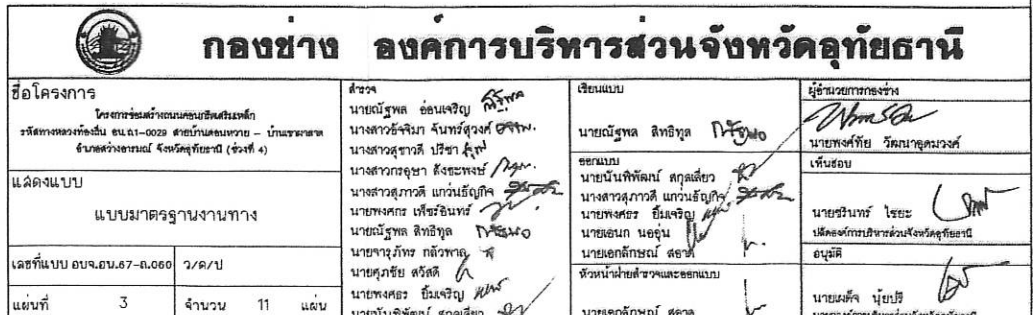 กองช่าง องค์การบริหารส่วนจังหวัดอุทัยธานี
ชื่อโครงการ
โครงการซ่อมสร้างถนนคอนกรีตเสริมเหล็ก
รหัสทางหลวงท้องถิ่น อน.ถ1-0029 สายบ้านดอนหวาย - บ้านเขาผาลาด
อำเภอสว่างอารมณ์ จังหวัดอุทัยธานี (ช่วงที่ 4)
แสดงแบบ
แบบมาตรฐานงานทาง
เลขที่แบบ อบจ.อน.67-ถ.060 ว/ด/ป
แผ่นที่ 3 จำนวน 11 แผ่น
สำรวจ
นายณัฐพล อ่อนเจริญ
นางสาวอัจจิมา จันทร์สุวงศ์
นางสาวสุชาวดี ปรีชา
นางสาวกรอุษา สังขะพงษ์
นางสาวสุภาวดี แก่นธัญกิจ
นายพงศกร เพ็ชร์อินทร์
นายณัฐพล สิทธิทูล
นายจารุภัทร กล้วพาฤ
นายศุภชัย สวัสดี
นายพงศธร ยิ้มเจริญ
นายนันพิพัฒน์ สกุลเสี่ยว
เขียนแบบ
นายณัฐพล สิทธิทูล
ออกแบบ
นายนันพิพัฒน์ สกุลเสี่ยว
นางสาวสุภาวดี แก่นธัญกิจ
นายพงศธร ยิ้มเจริญ
นายเอนก นออุ่น
นายเอกลักษณ์ สอาด
หัวหน้าฝ่ายสำรวจและออกแบบ
นายเอกลักษณ์ สอาด
ผู้อำนวยการกองช่าง
นายพงศ์ทัย วัฒนาอุดมวงศ์
เห็นชอบ
นายชรินทร์ ไชยะ
ปลัดองค์การบริหารส่วนจังหวัดอุทัยธานี
อนุมัติ
นายเผด็จ นุ้ยปรี
นายกองค์การบริหารส่วนจังหวัดอุทัยธานี